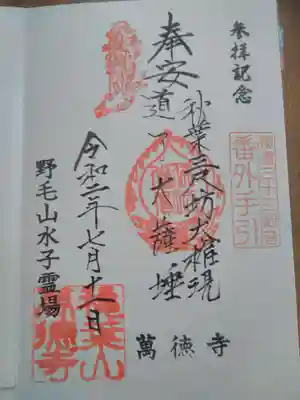 参拝記念
番外手引
奉安
秋葉三尺坊大権現
道了大薩埵
令和二年七月十一日
野毛山水子霊場
萬徳寺
萬徳寺